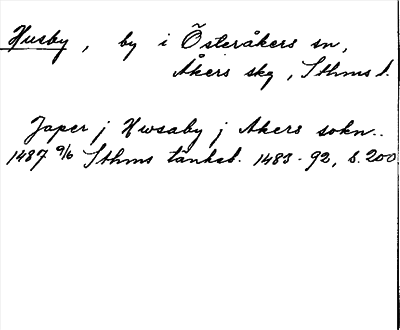 Husby, by i Österåkers sn,
Åkers skg, Sthms l.
Japer j Hwsaby j Akers sokn..
1487 9/6 Sthms tänkeb. 1483-92, s. 200